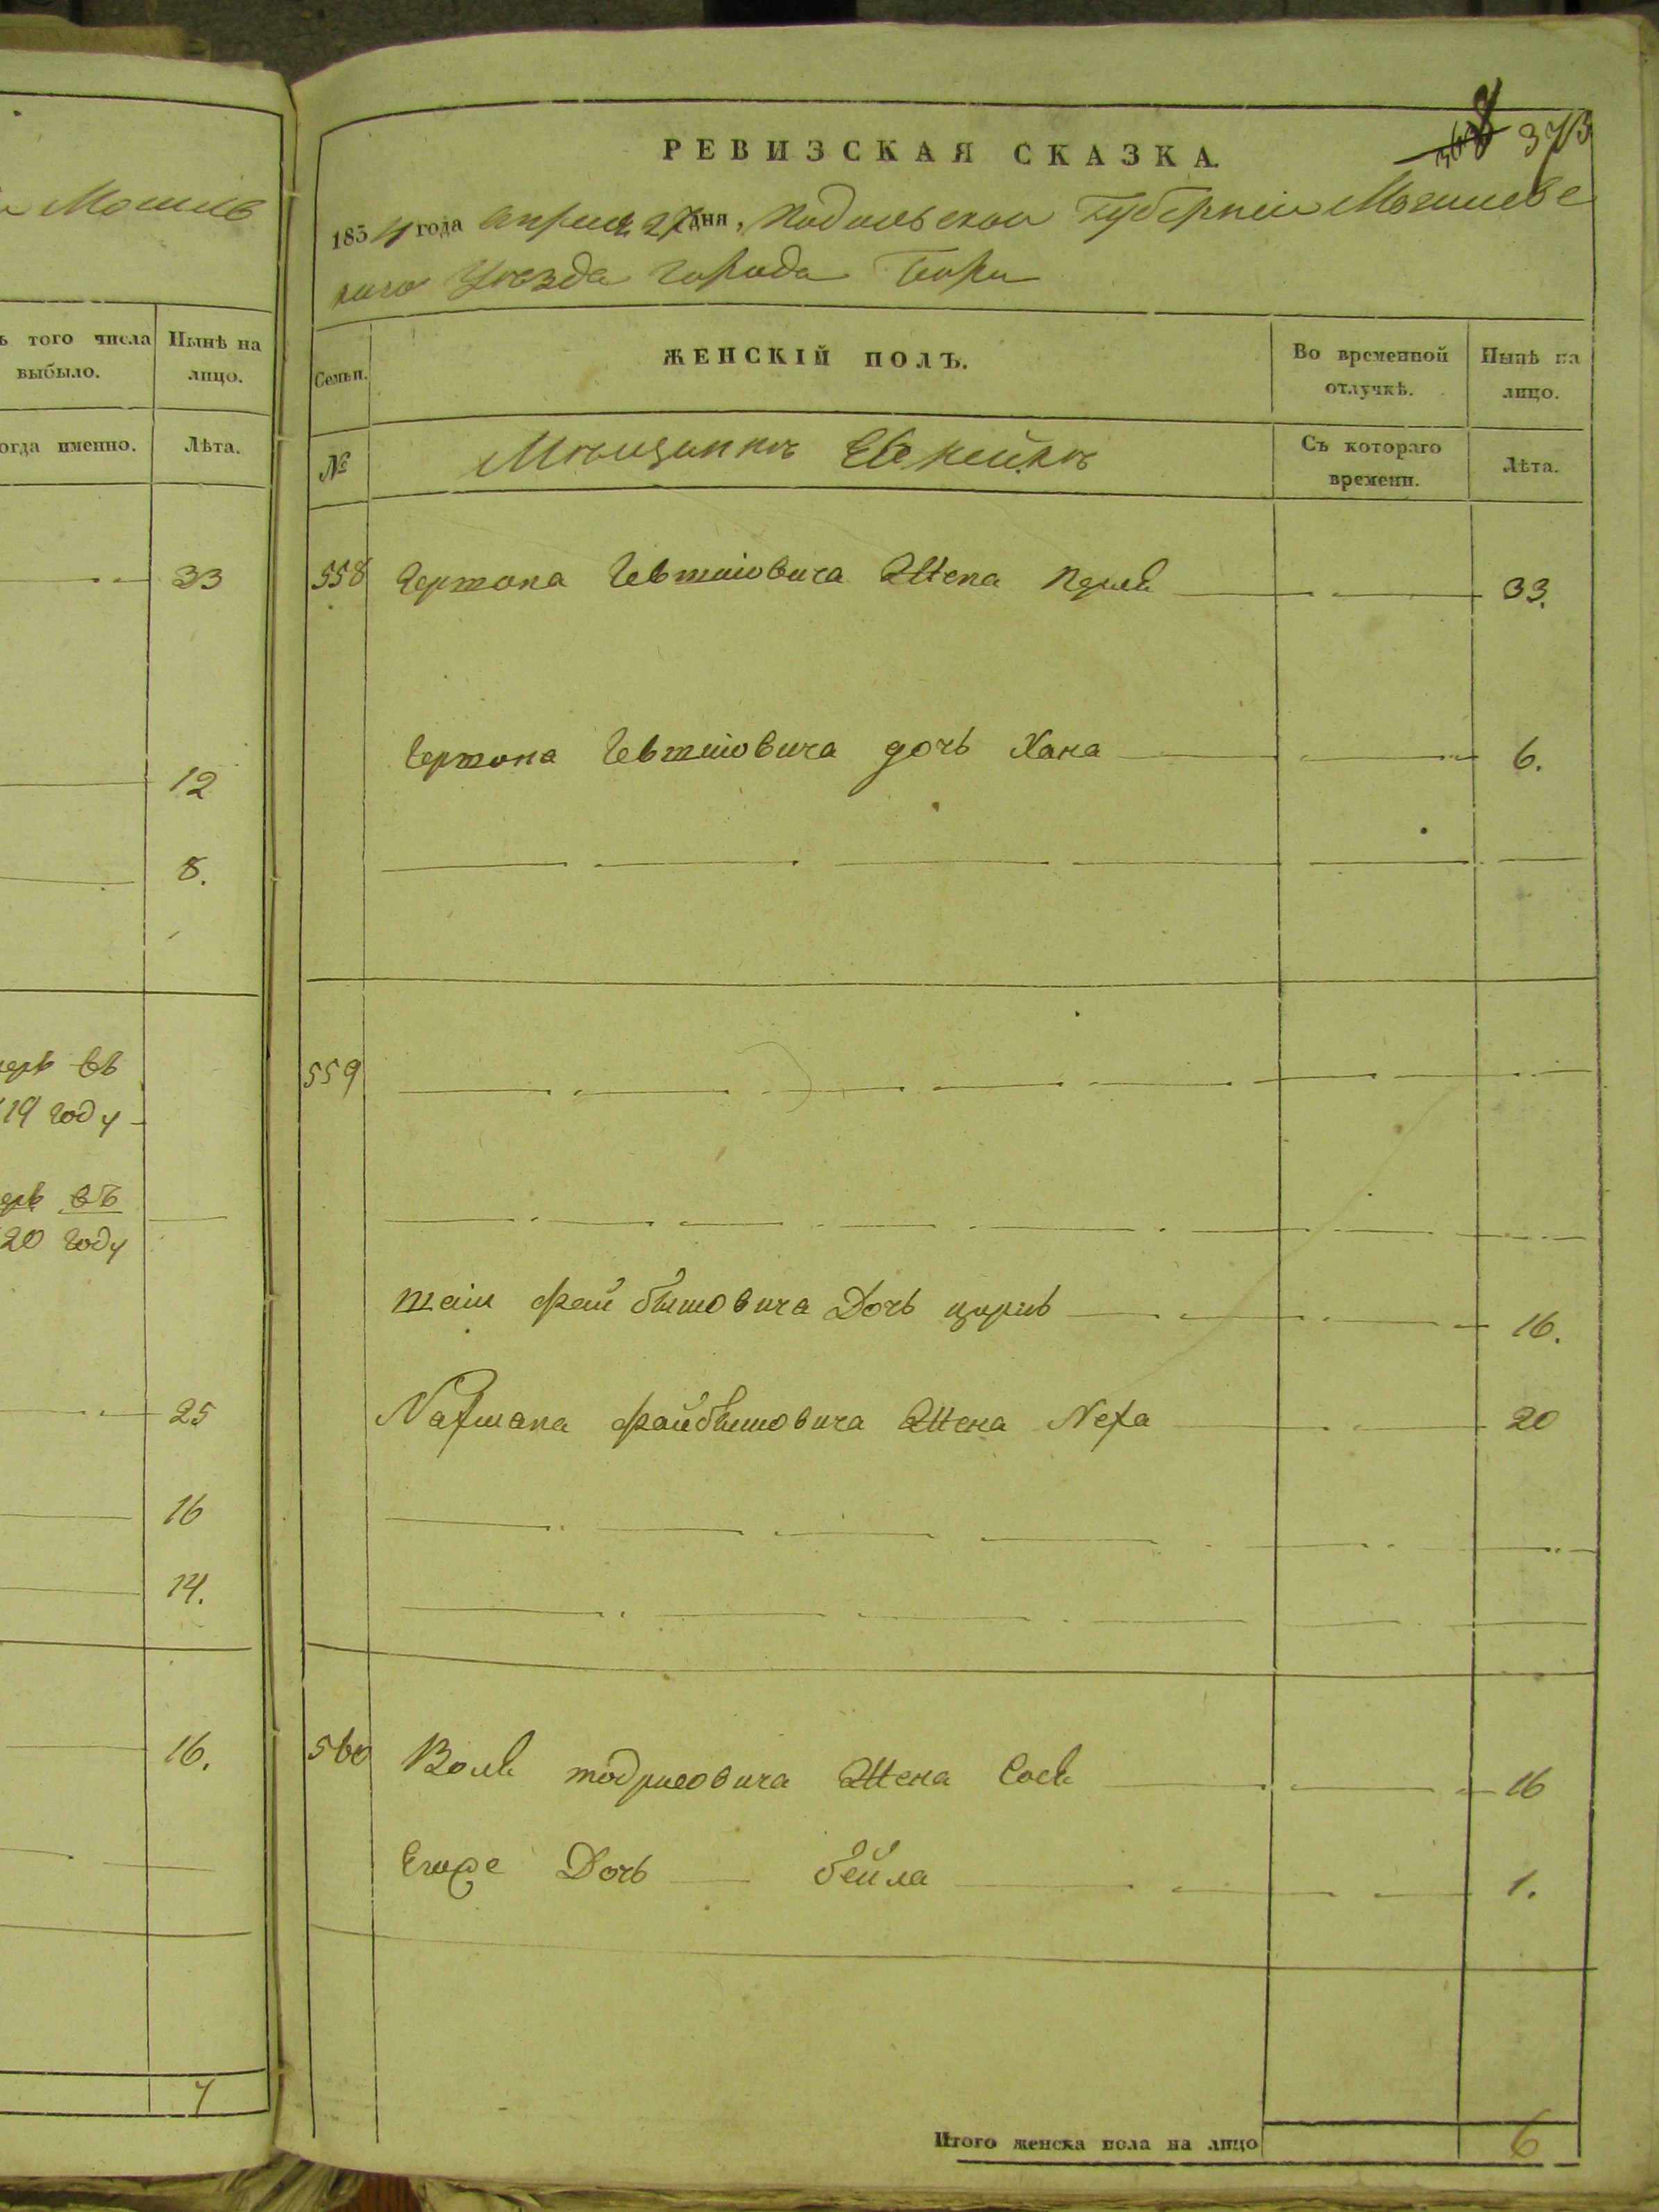 Могилев
ъ того числа выбыло.
Нынѣ на лицо.
огда именно.
Лѣта.
33
12
8.
въ
19 году
въ
20 году
25
16
14.
16.
7
373
РЕВИЗСКАЯ СКАЗКА.
1854 года Апреля 27 дня, Подольской Губернии Могилевс
каго Уезда города Бара
Семьи.
ЖЕНСКІЙ ПОЛЪ.
Во временной отлучкѣ.
Нынѣ на лицо.
№
Мещанкъ Евреекъ
Съ котораго времени.
Лѣта.
558 Гертона Жена Перля 33.
Гертона дочь Хана 6.
559
Файбишовича Дочь 16.
Нахмана Файбишовича Жена Неха 20
560 Воля Жена Сося 16
Егоже Дочь Бейла 1.
Итого женска пола на лицо 6